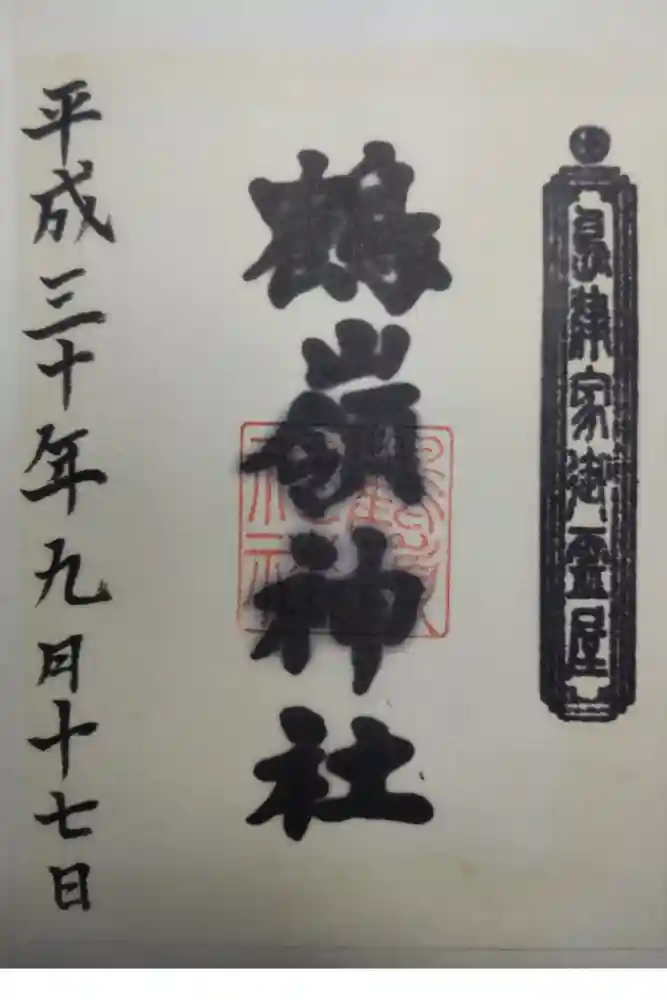 島津家御霊屋
鶴嶺神社
平成三十年九月十七日